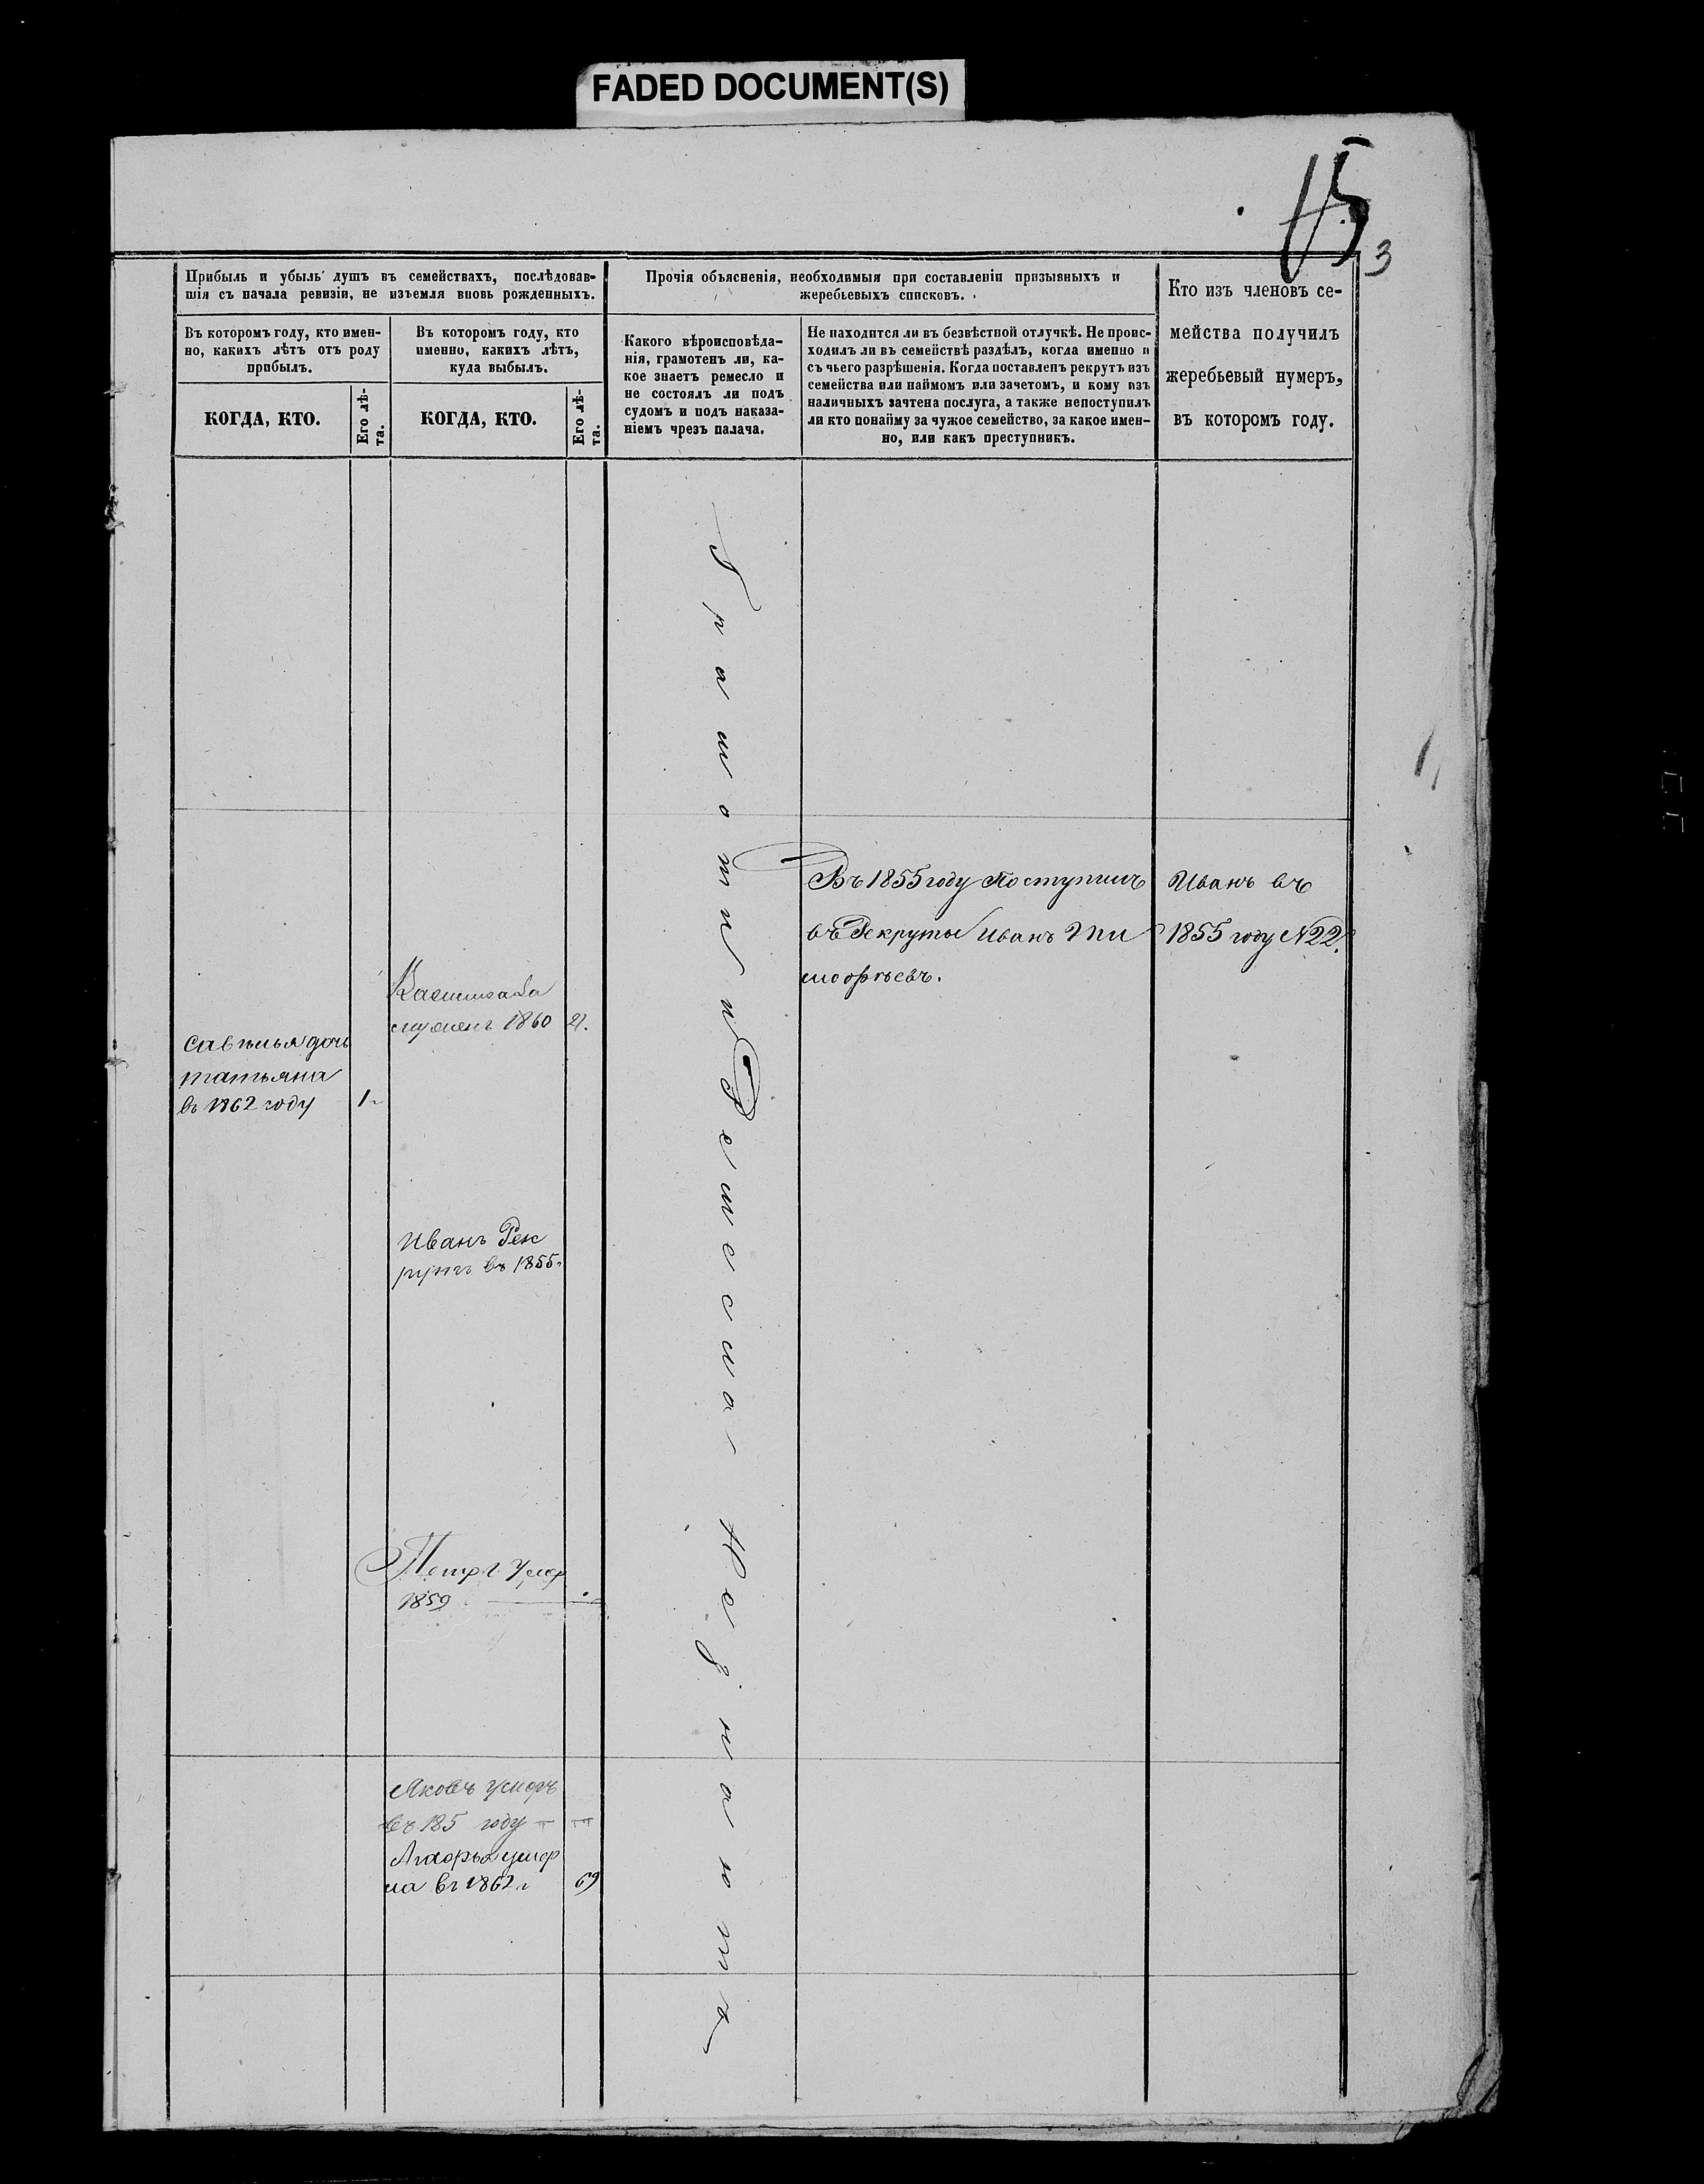 FADED DOCUMENT(S)
15
3
Прибыль и убыль душъ въ семействахъ, послѣдовав-
шія съ начала ревизіи, не изъемля вновь рожденныхъ.
Прочія объясненія, необходимыя при составленіи призывныхъ и
жеребьевыхъ списковъ.
Кто изъ членовъ се-
мейства получилъ
жеребьевый нумеръ,
въ которомъ году.
Въ которомъ году, кто имен-
но, какихъ лѣтъ отъ роду
прибылъ.
Въ которомъ году, кто
именно, какихъ лѣтъ,
куда выбылъ.
Какого вѣроисповѣда-
нія, грамотенъ ли, ка-
кое знаетъ ремесло и
не состоялъ ли подъ
судомъ и подъ наказа-
ніемъ чрезъ палача.
Не находится ли въ безвѣстной отлучкѣ. Не проис-
ходилъ ли въ семействѣ раздѣлъ, когда именно и
съ чьего разрѣшенія. Когда поставленъ рекрутъ изъ
семейства или наймомъ или зачетомъ, и кому изъ
наличныхъ зачтена послуга, а также непоступилъ
ли кто понайму за чужое семейство, за какое имен-
но, или какъ преступникъ.
КОГДА, КТО.
Его лѣ-
та.
КОГДА, КТО.
Его лѣ-
та.
Въ 1855 году Поступилъ
въ Рекруты Иванъ Ти
мофѣевъ.
Иванъ въ
1855 году N 22.
1860 21.
Савѣлья дочь
татьяна
въ 1862 году 1
Иванъ Рек
рутъ въ 1855
Петръ умер
1859
Яковъ умеръ
въ 185 году
умер
ла въ 1862 69
Грамоты и Ремесла Незнаютъ